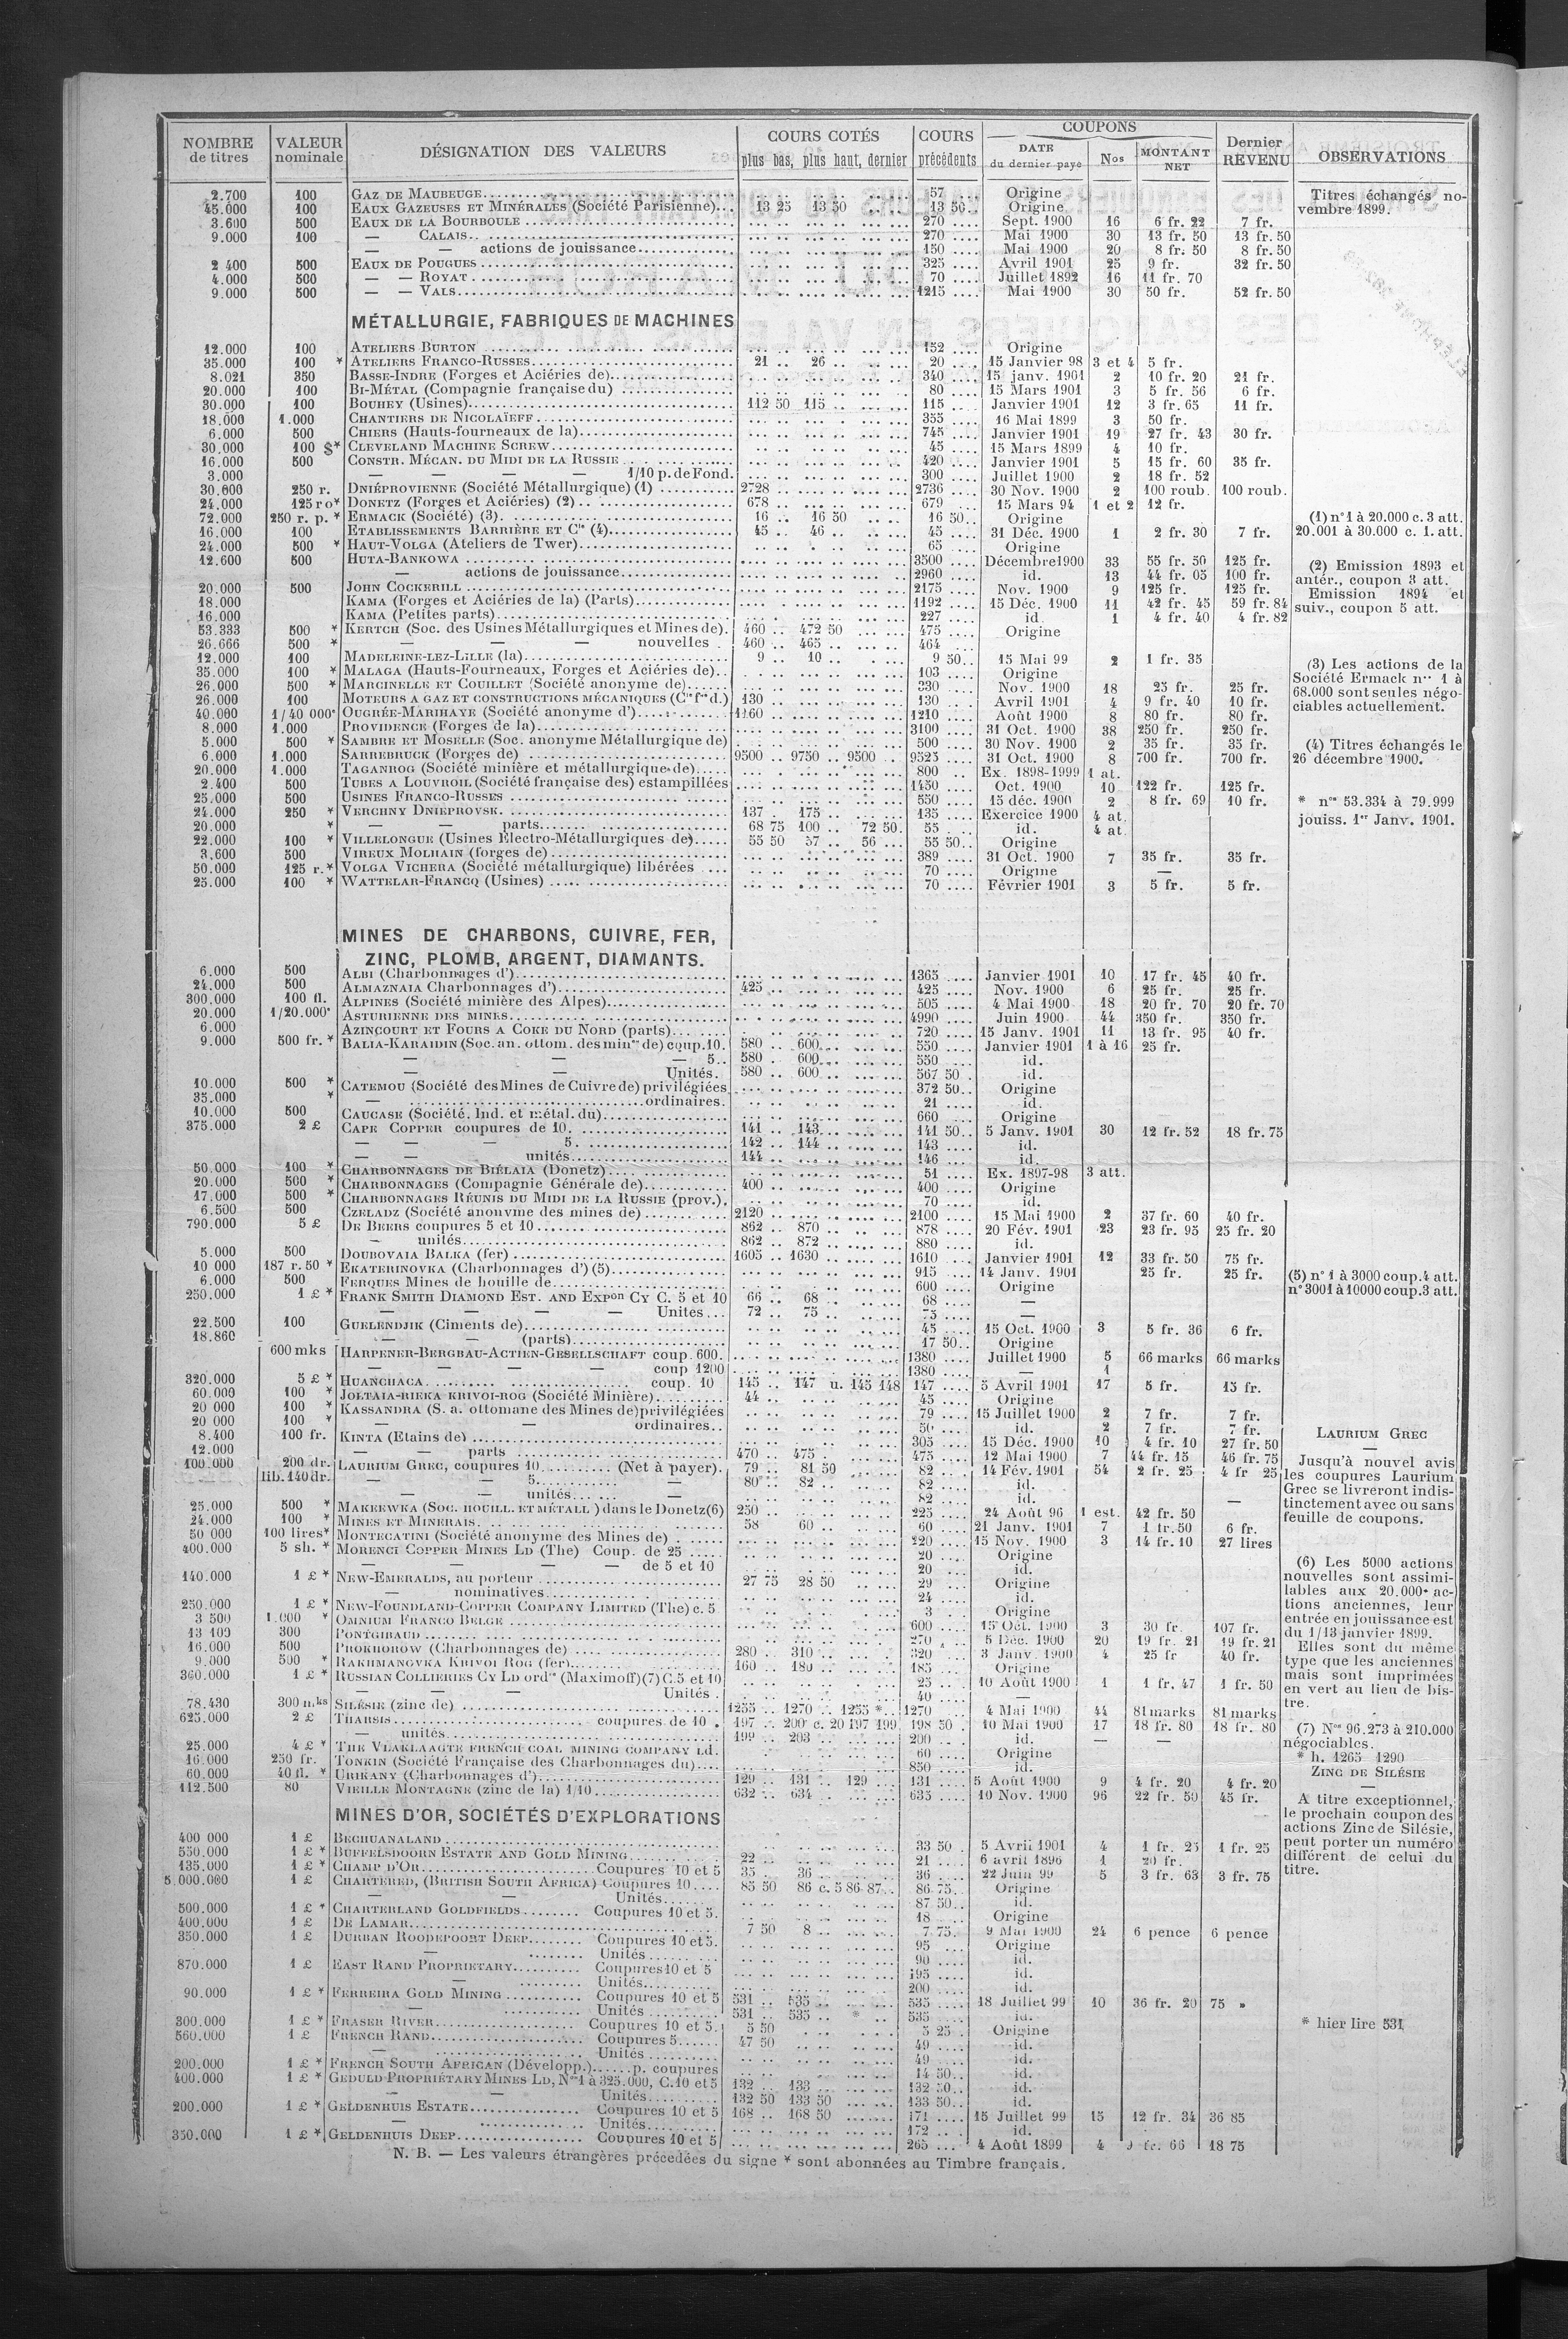 NOMBRE de titres | VALEUR nominale | DÉSIGNATION DES VALEURS | COURS COTÉS plus bas, plus haut, dernier | COURS précédents | COUPONS DATE du dernier payé | Nos | MONTANT NET | Dernier REVENU | OBSERVATIONS
2.700 | 100 | GAZ DE MAUBEUGE | 57 | Origine | Titres échangés no-
45.000 | 100 | EAUX GAZEUSES ET MINÉRALES (Société Parisienne) | 13 25 13 50 | 13 50 | Origine | vembre 1899.
3.600 | 500 | EAUX DE LA BOURBOULE | 270 | Sept. 1900 | 16 | 6 fr. 22 | 7 fr.
9.000 | 100 | — CALAIS | 270 | Mai 1900 | 30 | 13 fr. 50 | 13 fr. 50
— actions de jouissance | 150 | Mai 1900 | 20 | 8 fr. 50 | 8 fr. 50
2 400 | 500 | EAUX DE POUGUES | 325 | Avril 1901 | 25 | 9 fr. | 32 fr. 50
4.000 | 500 | — — ROYAT | 70 | Juillet 1892 | 16 | 11 fr. 70
9.000 | 500 | — — VALS | 1215 | Mai 1900 | 30 | 50 fr. | 52 fr. 50
MÉTALLURGIE, FABRIQUES DE MACHINES
12.000 | 100 | ATELIERS BURTON | 152 | Origine
35.000 | 100 * | ATELIERS FRANCO-RUSSES | 21 26 | 20 | 15 Janvier 98 | 3 et 4 | 5 fr.
8.021 | 350 | BASSE-INDRE (Forges et Aciéries de) | 340 | 15 janv. 1901 | 2 | 10 fr. 20 | 21 fr.
20.000 | 100 | BI-MÉTAL (Compagnie française du) | 80 | 15 Mars 1901 | 3 | 5 fr. 56 | 6 fr.
30.000 | 100 | BOUHEY (Usines) | 112 50 115 | 115 | Janvier 1901 | 12 | 3 fr. 65 | 11 fr.
18.000 | 1.000 | CHANTIERS DE NICOLAÏEFF | 355 | 16 Mai 1899 | 3 | 50 fr.
6.000 | 500 | CHIERS (Hauts-fourneaux de la) | 745 | Janvier 1901 | 19 | 27 fr. 43 | 30 fr.
30.000 | 100 $* | CLEVELAND MACHINE SCREW | 45 | 15 Mars 1899 | 4 | 10 fr.
16.000 | 500 | CONSTR. MÉCAN. DU MIDI DE LA RUSSIE | 420 | Janvier 1901 | 5 | 15 fr. 60 | 35 fr.
3.000 | — — — — 1/10 p. de Fond. | 300 | Juillet 1900 | 2 | 18 fr. 52
30.600 | 250 r. | DNIÉPROVIENNE (Société Métallurgique) (1) | 2728 | 2736 | 30 Nov. 1900 | 2 | 100 roub. | 100 roub.
24.000 | 125 ro* | DONETZ (Forges et Aciéries) (2) | 678 | 679 | 15 Mars 94 | 1 et 2 | 12 fr.
72.000 | 250 r. p. * | ERMACK (Société) (3) | 16 16 50 | 16 50 | Origine | (1) n° 1 à 20.000 c. 3 att.
16.000 | 100 | ETABLISSEMENTS BARRIÈRE ET Cie (4) | 45 46 | 45 | 31 Déc. 1900 | 1 | 2 fr. 30 | 7 fr. | 20.001 à 30.000 c. 1. att.
24.000 | 500 * | HAUT-VOLGA (Ateliers de Twer) | 65 | Origine
12.600 | 500 | HUTA-BANKOWA | 3500 | Décembre 1900 | 33 | 55 fr. 50 | 125 fr. | (2) Emission 1893 et
— actions de jouissance | 2960 | id. | 13 | 44 fr. 05 | 100 fr. | antér., coupon 3 att.
20.000 | 500 | JOHN COCKERILL | 2175 | Nov. 1900 | 9 | 125 fr. | 125 fr. | Emission 1894 et
18.000 | KAMA (Forges et Aciéries de la) (Parts) | 1192 | 15 Déc. 1900 | 11 | 42 fr. 45 | 59 fr. 84 | suiv., coupon 5 att.
16.000 | KAMA (Petites parts) | 227 | id. | 1 | 4 fr. 40 | 4 fr. 82
53.333 | 500 * | KERTCH (Soc. des Usines Métallurgiques et Mines de) | 460 472 50 | 475 | Origine
26.666 | 500 * | — — nouvelles | 460 465 | 464
12.000 | 100 | MADELEINE-LEZ-LILLE (la) | 9 10 | 9 50 | 15 Mai 99 | 2 | 1 fr. 35
35.000 | 100 * | MALAGA (Hauts-Fourneaux, Forges et Aciéries de) | 103 | Origine | (3) Les actions de la
26.000 | 500 * | MARCINELLE ET COUILLET (Société anonyme de) | 330 | Nov. 1900 | 18 | 25 fr. | 25 fr. | Société Ermack nos 1 à
26.000 | 100 | MOTEURS A GAZ ET CONSTRUCTIONS MÉCANIQUES (Cie fse d.) | 130 | 130 | Avril 1901 | 4 | 9 fr. 40 | 10 fr. | 68.000 sont seules négo-
40.000 | 1/40 000e | OUGRÉE-MARIHAYE (Société anonyme d') | 1160 | 1210 | Août 1900 | 8 | 80 fr. | 80 fr. | ciables actuellement.
8.000 | 1.000 | PROVIDENCE (Forges de la) | 3100 | 31 Oct. 1900 | 38 | 250 fr. | 250 fr.
5.000 | 500 * | SAMBRE ET MOSELLE (Soc. anonyme Métallurgique de) | 500 | 30 Nov. 1900 | 2 | 35 fr. | 35 fr. | (4) Titres échangés le
6.000 | 1.000 | SARREBRUCK (Forges de) | 9500 9750 9500 | 9525 | 31 Oct. 1900 | 8 | 700 fr. | 700 fr. | 26 décembre 1900.
20.000 | 1.000 | TAGANROG (Société minière et métallurgique de) | 800 | Ex. 1898-1999 | 1 at.
2.400 | 500 | TUBES A LOUVROIL (Société française des) estampillées | 1450 | Oct. 1900 | 10 | 122 fr. | 125 fr.
25.000 | 500 | USINES FRANCO-RUSSES | 550 | 15 déc. 1900 | 2 | 8 fr. 69 | 10 fr. | * nos 53.334 à 79.999
24.000 | 250 * | VERCHNY DNIEPROVSK | 137 175 | 135 | Exercice 1900 | 4 at. | jouiss. 1er Janv. 1901.
20.000 | * | — — parts | 68 75 100 72 50 | 55 | id. | 4 at.
22.000 | 100 * | VILLELONGUE (Usines Electro-Métallurgiques de) | 55 50 57 56 | 55 50 | Origine
3.600 | 500 | VIREUX MOLHAIN (forges de) | 389 | 31 Oct. 1900 | 7 | 35 fr. | 35 fr.
50.000 | 125 r. * | VOLGA VICHERA (Société métallurgique) libérées | 70 | Origine | —
25.000 | 100 * | WATTELAR-FRANCQ (Usines) | 70 | Février 1901 | 3 | 5 fr. | 5 fr.
MINES DE CHARBONS, CUIVRE, FER,
ZINC, PLOMB, ARGENT, DIAMANTS.
6.000 | 500 | ALBI (Charbonnages d') | 1365 | Janvier 1901 | 10 | 17 fr. 45 | 40 fr.
24.000 | 500 | ALMAZNAIA Charbonnages d') | 425 | 425 | Nov. 1900 | 6 | 25 fr. | 25 fr.
300.000 | 100 fl. | ALPINES (Société minière des Alpes) | 505 | 4 Mai 1900 | 18 | 20 fr. 70 | 20 fr. 70
20.000 | 1/20.000e | ASTURIENNE DES MINES | 4990 | Juin 1900 | 44 | 350 fr. | 350 fr.
6.000 | AZINCOURT ET FOURS A COKE DU NORD (parts) | 720 | 15 Janv. 1901 | 11 | 13 fr. 95 | 40 fr.
9.000 | 500 fr. * | BALIA-KARAIDIN (Soc. an. ottom. des mines de) coup. 10. | 580 600 | 550 | Janvier 1901 | 1 à 16 | 25 fr.
— — — 5 | 580 600 | 550 | id.
— — Unités. | 580 600 | 567 50 | id.
10.000 | 500 * | CATEMOU (Société des Mines de Cuivre de) privilégiées | 372 50 | Origine
35.000 | * | — ordinaires. | 21 | id.
10.000 | 500 | CAUCASE (Société. Ind. et métal. du) | 660 | Origine
375.000 | 2 £ | CAPE COPPER coupures de 10. | 141 143 | 141 50 | 5 Janv. 1901 | 30 | 12 fr. 52 | 18 fr. 75
— — — 5. | 142 144 | 143 | id.
— — unités | 144 | 146 | id.
50.000 | 100 * | CHARBONNAGES DE BIÉLAIA (Donetz) | 51 | Ex. 1897-98 | 3 att.
20.000 | 500 * | CHARBONNAGES (Compagnie Générale de) | 400 | 400 | Origine
17.000 | 500 * | CHARBONNAGES RÉUNIS DU MIDI DE LA RUSSIE (prov.) | 70 | id.
6.500 | 500 | CZELADZ (Société anonyme des mines de) | 2120 | 2100 | 15 Mai 1900 | 2 | 37 fr. 60 | 40 fr.
790.000 | 5 £ | DE BEERS coupures 5 et 10 | 862 870 | 878 | 20 Fév. 1901 | 23 | 23 fr. 95 | 25 fr. 20
— unités | 862 872 | 880 | id.
5.000 | 500 | DOUBOVAIA BALKA (fer) | 1605 1630 | 1610 | Janvier 1901 | 12 | 33 fr. 50 | 75 fr.
10 000 | 187 r. 50 * | EKATERINOVKA (Charbonnages d') (5) | 915 | 14 Janv. 1901 | 25 fr. | 25 fr. | (5) n° 1 à 3000 coup. 4 att.
6.000 | 500 | FERQUES Mines de houille de | 600 | Origine | n° 3001 à 10000 coup. 3 att.
250.000 | 1 £ * | FRANK SMITH DIAMOND EST. AND EXPon CY C. 5 et 10 | 66 68 | 68 | —
— — — — Unités | 72 75 | 75 | —
22.500 | 100 | GUELENDJIK (Ciments de) | 45 | 15 Oct. 1900 | 3 | 5 fr. 36 | 6 fr.
18.860 | — — (parts) | 17 50 | Origine
600 mks | HARPENER-BERGBAU-ACTIEN-GESELLSCHAFT coup. 600. | 1380 | Juillet 1900 | 5 | 66 marks | 66 marks
— — — — coup 1200 | 1380 | — | 1
320.000 | 5 £ * | HUANCHACA coup. 10 | 145 147 u. 145 148 | 147 | 5 Avril 1901 | 17 | 5 fr. | 15 fr.
60.000 | 100 * | JOLTAIA-RIEKA KRIVOI-ROG (Société Minière) | 44 | 45 | Origine
20 000 | 100 * | KASSANDRA (S. a. ottomane des Mines de) privilégiées | 79 | 15 Juillet 1900 | 2 | 7 fr. | 7 fr.
20 000 | 100 * | — — ordinaires | 50 | id. | 2 | 7 fr. | 7 fr.
8.400 | 100 fr. | KINTA (Etains de) | 305 | 15 Déc. 1900 | 10 | 4 fr. 10 | 27 fr. 50 | LAURIUM GREC
12.000 | — — parts | 470 475 | 475 | 12 Mai 1900 | 7 | 44 fr. 15 | 46 fr. 75 | —
100.000 | 200 dr. | LAURIUM GREC, coupures 10 (Net à payer). | 79 81 50 | 82 | 14 Fév. 1901 | 54 | 2 fr. 25 | 4 fr 25 | Jusqu'à nouvel avis
lib. 140 dr. | — — 5 — | 80 82 | 82 | id. | les coupures Laurium
— — unités — | 82 | id. | — | Grec se livreront indis-
25.000 | 500 * | MAKEEWKA (SOC. HOUILL. ET MÉTALL.) dans le Donetz (6) | 250 | 225 | 24 Août 96 | 1 est. | 42 fr. 50 | tinctement avec ou sans
24.000 | 100 * | MINES ET MINERAIS | 58 60 | 60 | 21 Janv. 1901 | 7 | 1 fr. 50 | 6 fr. | feuille de coupons.
50 000 | 100 lires* | MONTECATINI (Société anonyme des Mines de) | 220 | 15 Nov. 1900 | 3 | 14 fr. 10 | 27 lires
400.000 | 5 sh. * | MORENCI COPPER MINES LD (The) Coup. de 25 | 20 | Origine
— — — — de 5 et 10 | 20 | id. | (6) Les 5000 actions
140.000 | 1 £ * | NEW-EMERALDS, au porteur | 27 75 28 50 | 29 | Origine | nouvelles sont assimi-
— nominatives | 24 | id. | lables aux 20.000 ac-
250.000 | 1 £ * | NEW-FOUNDLAND-COPPER COMPANY LIMITED (The) c. 5 | 3 | Origine | tions anciennes, leur
3 500 | 1.000 * | OMNIUM FRANCO BELGE | 600 | 15 Oct. 1900 | 3 | 30 fr. | 107 fr. | entrée en jouissance est
13 400 | 300 | PONTGIBAUD | 270 | 5 Déc. 1900 | 20 | 19 fr. 21 | 19 fr. 21 | du 1/13 janvier 1899.
16.000 | 500 | PROKHOROW (Charbonnages de) | 280 310 | 320 | 3 Janv. 1900 | 4 | 25 fr | 40 fr. | Elles sont du même
9.000 | 500 * | RAKHMANOVKA KRIVOI ROG (fer) | 160 180 | 185 | Origine | type que les anciennes
360.000 | 1 £ * | RUSSIAN COLLIERIES CY LD ordres (Maximoff) (7) C. 5 et 10 | 25 | 10 Août 1900 | 1 | 1 fr. 47 | 1 fr. 50 | mais sont imprimées
— — — Unités | 40 | — | en vert au lieu de bis-
78.430 | 300 mks | SILÉSIE (zinc de) | 1255 1270 1255 * | 1270 | 4 Mai 1900 | 44 | 81 marks | 81 marks | tre.
625.000 | 2 £ | THARSIS coupures de 10 | 197 200 c. 20 197 199 | 198 50 | 10 Mai 1900 | 17 | 18 fr. 80 | 18 fr. 80 | (7) Nos 96.273 à 210.000
— unités | 199 203 | 200 | id. | — | — | négociables.
25.000 | 4 £ * | THE VLAKLAAGTE FRENCH COAL MINING COMPANY Ld. | 60 | Origine | * h. 1265 1290
16.000 | 250 fr. | TONKIN (Société Française des Charbonnages du) | 850 | id. | ZINC DE SILÉSIE
60.000 | 40 fl. * | URIKANY (Charbonnages d') | 129 131 129 | 131 | 5 Août 1900 | 9 | 4 fr. 20 | 4 fr. 20 | —
112.500 | 80 | VIEILLE MONTAGNE (zinc de la) 1/10 | 632 634 | 635 | 10 Nov. 1900 | 96 | 22 fr. 50 | 45 fr. | A titre exceptionnel,
MINES D'OR, SOCIÉTÉS D'EXPLORATIONS | le prochain coupon des
actions Zinc de Silésie,
400 000 | 1 £ | BECHUANALAND | 33 50 | 5 Avril 1901 | 4 | 1 fr. 25 | 1 fr. 25 | peut porter un numéro
550.000 | 1 £ * | BUFFELSDOORN ESTATE AND GOLD MINING | 22 | 21 | 6 avril 1896 | 1 | 20 fr. | différent de celui du
135.000 | 1 £ * | CHAMP D'OR Coupures 10 et 5 | 35 36 | 36 | 22 Juin 99 | 5 | 3 fr. 63 | 3 fr. 75 | titre.
5.000.000 | 1 £ | CHARTERED, (BRITISH SOUTH AFRICA) Coupures 10 | 85 50 86 c. 5 86 87 | 86 75 | Origine
— — Unités | 87 50 | id.
500.000 | 1 £ * | CHARTERLAND GOLDFIELDS Coupures 10 et 5. | 18 | Origine
400.000 | 1 £ | DE LAMAR | 7 50 8 | 7 75 | 9 Mai 1900 | 24 | 6 pence | 6 pence
350.000 | 1 £ | DURBAN ROODEPOORT DEEP Coupures 10 et 5. | 95 | Origine
— Unités | 90 | id.
870.000 | 1 £ | EAST RAND PROPRIETARY Coupures 10 et 5 | 195 | id.
— Unités | 200 | id.
90.000 | 1 £ * | FERREIRA GOLD MINING Coupures 10 et 5 | 531 535 | 535 | 18 Juillet 99 | 10 | 36 fr. 20 | 75 »
— Unités | 531 535 * | 535 | id.
300.000 | 1 £ * | FRASER RIVER Coupures 10 et 5. | 5 50 | 5 25 | Origine | * hier lire 531
560.000 | 1 £ | FRENCH RAND Coupures 5 | 47 50 | 49 | id.
— Unités | 49 | id.
200.000 | 1 £ * | FRENCH SOUTH AFRICAN (Développ.) p. coupures | 14 50 | id.
400.000 | 1 £ * | GEDULD PROPRIÉTARY MINES LD, Nos 1 à 325.000, C. 10 et 5 | 132 133 | 132 50 | id.
— — Unités | 132 50 133 50 | 133 50 | id.
200.000 | 1 £ * | GELDENHUIS ESTATE Coupures 10 et 5 | 168 168 50 | 171 | 15 Juillet 99 | 15 | 12 fr. 34 | 36 85
— Unités | 172 | id.
350.000 | 1 £ * | GELDENHUIS DEEP Coupures 10 et 5 | 265 | 4 Août 1899 | 4 | fr. 66 | 18 75
N. B. — Les valeurs étrangères précédées du signe * sont abonnées au Timbre français.